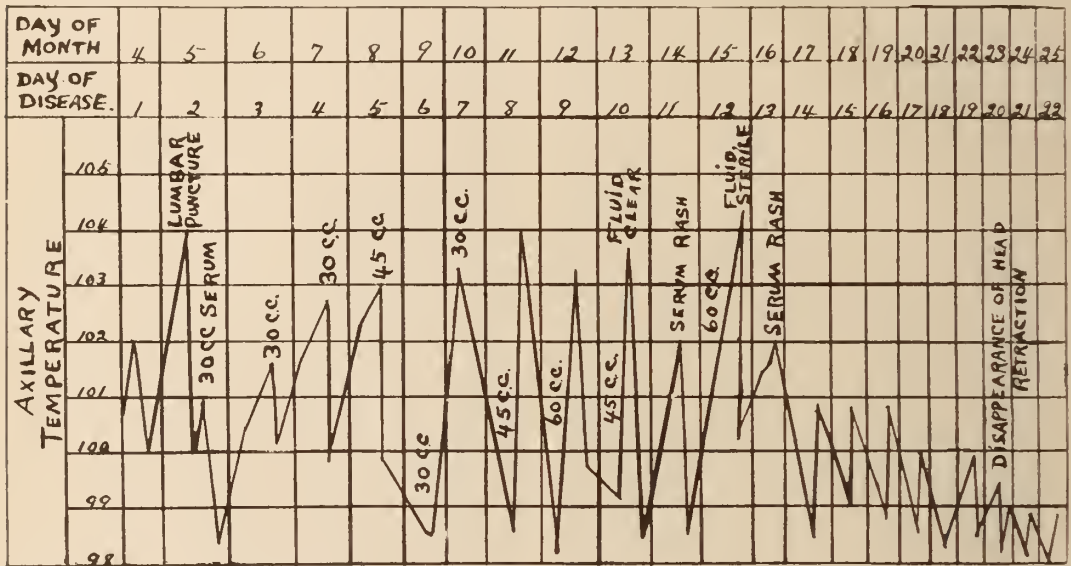 DAY OF
MONTH
4 5 6 7 8 9 10 11 12 13 14 15 16 17 18 19 20 21 22 23 24 25
DAY OF
DISEASE.
1 2 3 4 5 6 7 8 9 10 11 12 13 14 15 16 17 18 19 20 21 22
AXILLARY
TEMPERATURE
105
104
103
102
101
100
99
98
LUMBAR
PUNCTURE
30 CC SERUM
30 C.C.
30 C.C.
45 C.C
30 C.C
30 C.C.
45 C.C.
60 C.C.
45 C.C.
FLUID
CLEAR
SERUM RASH
60 C.C.
FLUID,
STERILE
SERUM RASH
DISAPPEARANCE OF HEAD
RETRACTION